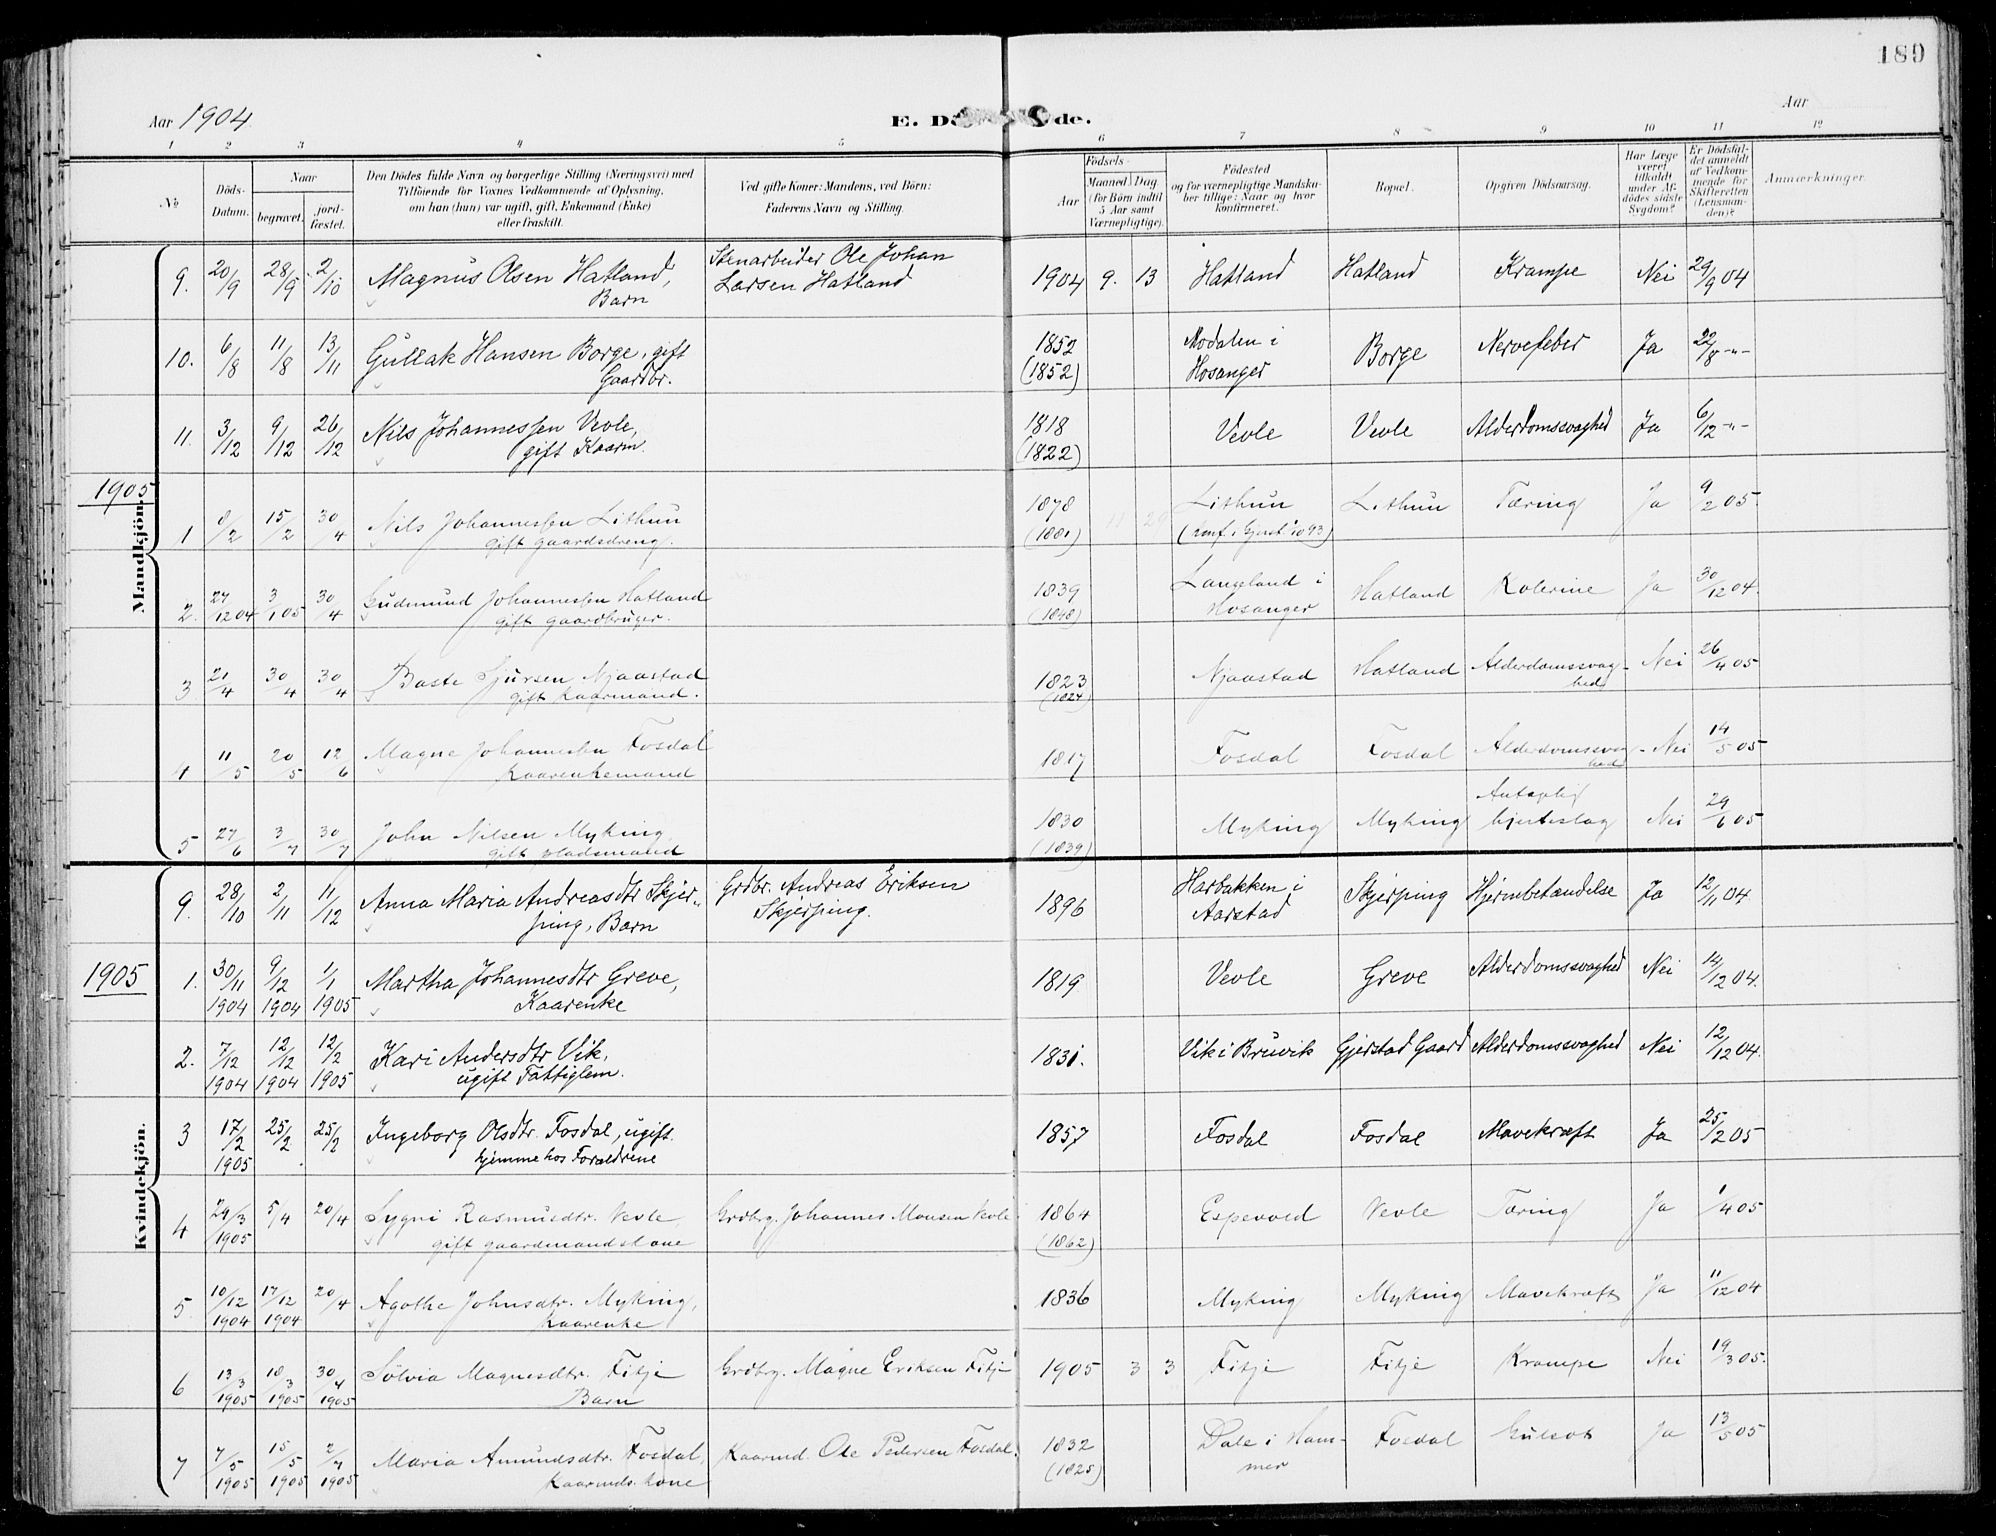 189
Aar 1904
E. Dö de.
Aar
1 2 3 4 5 6 7 8 9 10 11 12
No
Döds-Datum.
Naar
begravet.
jord-fæstet.
Den Dödes fulde Navn og borgerlige Stilling (Næringsvei) med
Tilföiende for Voxnes Vedkommende af Oplysning,
om han (hun) var ugift, gift, Enkemand (Enke)
eller fraskilt.
Ved gifte Koner: Mandens, ved Börn:
Faderens Navn og Stilling.
Födsels-
Aar
Maaned Dag
(for Börn indtil
5 Aar samt
Værnepligtige).
Födested
og for værnepligtige Mandskaber
tillige: Naar og hvor
konfirmeret.
Bopæl.
Opgiven Dödsaarsag.
Har Læge
været
tilkaldt
under Afdödes
sidste
Sygdom?
Er Dödsfaldet
anmeldt
af Vedkommende
for
Skifteretten
(Lensmanden)?
Anmærkninger
Mandkjön.
9. 20/9 28/9 2/10 Magnus Olsen Hatland, Barn Stenarbeider Ole Johan Larsen Hatland 1904 9. 13 Hatland Hatland Krampe Nei 29/9 04
10. 6/8 11/8 13/11 Gullak Hansen Borge, gift Gaardbr. 1852 (1852) Modalen i Hosanger Borge Nervefeber Ja 22/8 -"-
11. 3/12 9/12 26/12 Nils Johannessen Vevle, gift Kaarm. 1818 (1822) Vevle Vevle Alderdomssvaghed Ja 6/12 -"-
1905
1 8/2 15/2 30/4 Nils Johannessen Lithun gift gaardsdreng. 1878 (1881) Lithun Lithun Tæring Ja 9/2 05.
2. 27/12 04 3/1 05 30/4 Gudmund Johannessen Hatland gift gaardbruger. 1839 (1848) Langeland i Hosanger Hatland Kolerine Ja 30/12 04.
3 21/4 30/4 30/4 Baste Sjursen Njaastad gift kaarmand. 1823 (1824) Njaastad Hatland Alderdomssvaghed Nei 26/4 05
4 11/5 20/5 12/6 Magne Johannessen Fosdal Kaarenkemand 1817 Fosdal Fosdal Alderdomssvaghed Nei 14/5 05
5 27/6 3/7 30/7 John Nilsen Myking, gift pladsmand 1830 (1839) Myking Myking Antagelig hjerteslag Nei 29/6 05
Kvindekjön.
9. 28/10 2/11 11/12 Anna Maria Andreasdtr Skjerping, Barn Grdbr. Andreas Eriksen Skjerping. 1896 Harbakken i Aarstad Skjerping Hjernbetændelse Ja 12/11 04.
1905
1. 30/11 1904 9/12 1904 1/1 1905 Martha Johannesdtr Greve, Kaarenke 1819 Vevle Greve Alderdomssvaghed Nei 14/12 04.
2. 7/12 1904 12/12 1904 12/2 1905 Kari Andersdtr Vik, ugift Fattiglem. 1831. Vik i Bruvik Gjerstad Gaard Alderdomssvaghed Nei 12/12 04.
3 17/2 1905 25/2 25/2 Ingeborg Olsdtr. Fosdal, ugift. hjemme hos Forældrene 1857 Fosdal Fosdal Mavekræft Ja 25/2 05
4 29/3 1905 5/4 20/4 Sygni Rasmusdtr. Vevle, gift gaardmandskone Grdbrg. Johannes Monsen Vevle 1864 (1862) Espevold Vevle Tæring Ja 1/4 05
5 10/12 1904 17/12 1904 20/4 Agathe Johnsdtr. Myking, Kaarenke 1836 Myking Myking Mavekræft Ja 11/12 04
6 13/3 1905 18/3 1905 30/4 1905 Sölvia Magnesdtr. Fitje Barn Grdbrg. Magne Eriksen Fitje 1905 3 3 Fitje Fitje Krampe Nei 19/3 05.
7 7/5 1905 15/5 1905 2/7 1905 Maria Amundsdtr. Fosdal, Kaarmds. kone Kaarmd. Ole Pedersen Fosdal. 1832 (1825) Dale i Hammer Fosdal Gulsot Ja 13/5 05